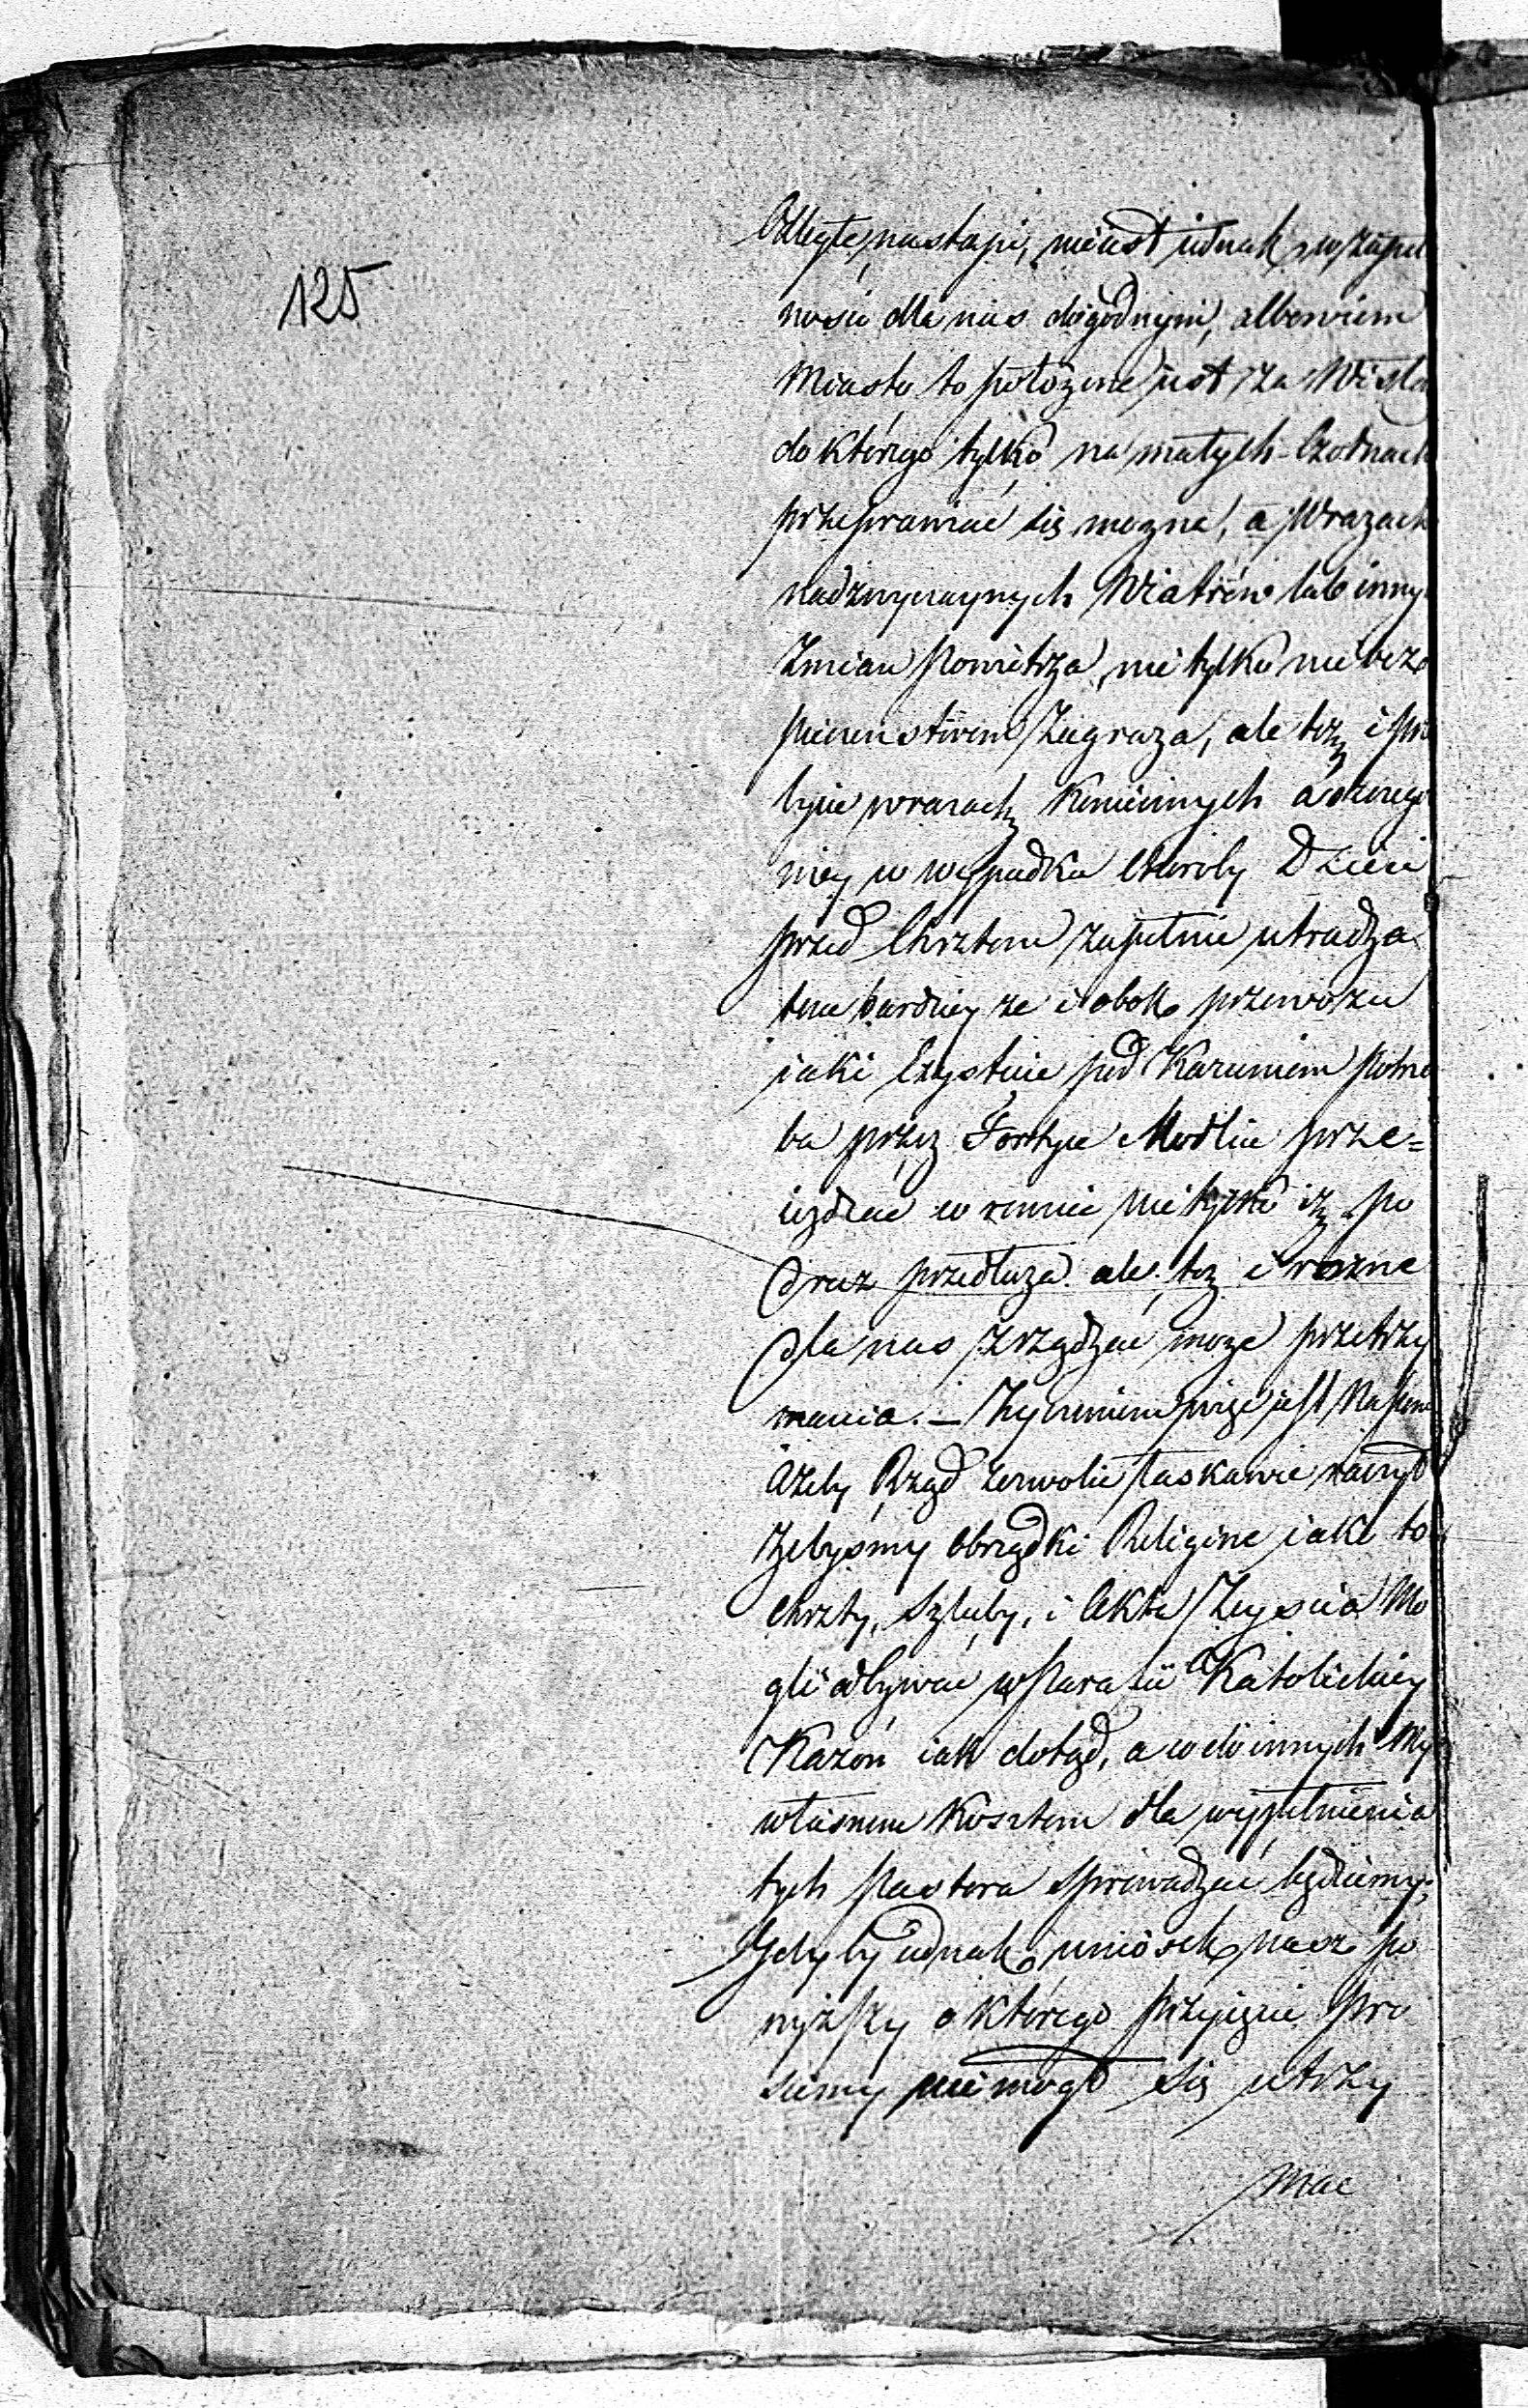 125
Odległe, nastąpi, nie iest iednak w zupeł
ności dla nas dogodnym, albowiem
Miasto to położone iest za Wisłą
do którego tylko na małych Czołnach
przeprawiać się mozna, a w razach
nadzwyczaynych Wiatrów lub innych
Zmian Powietrza, nie tylko niebez
pieczenstwem Zagraza, ale tez i prze
bycie w razach koniecznych a szczegol
niey w wypadku Choroby Dzieci
przed Chrztem zupełnie utrudza
tem bardziey ze i obok przewozu
iaki Exystuie pod Kazuniem potrze
ba przez Fortyce Modlin prze=
ieżdzać w zimie nie tylko iż po
draz przedłuza ale tez i rożne
dla nas zrządzać moze przetrzy
mania. – Zyczeniem więc iest Naszem
Azeby Rząd zezwolić łaskawie raczył
Zebyśmy Obrządki Religine iako to
Chrzty, Szluby, i Akta Zeyscia Mo
gli odbywać w Parafii Katolickiey
Kazoń iak dotąd, a w do innych My
własnem Kosztem dla wypełnienia
tych Pastora sprowadzać będziemy,
Gdyby iednak wniosek nasz po
wyższy o którego przyięcie pro
siemy nie mogł się utrzy
mac